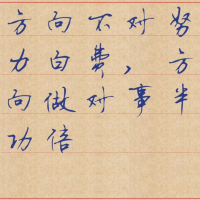 方向不对努
力白费，方
向做对事半
功倍